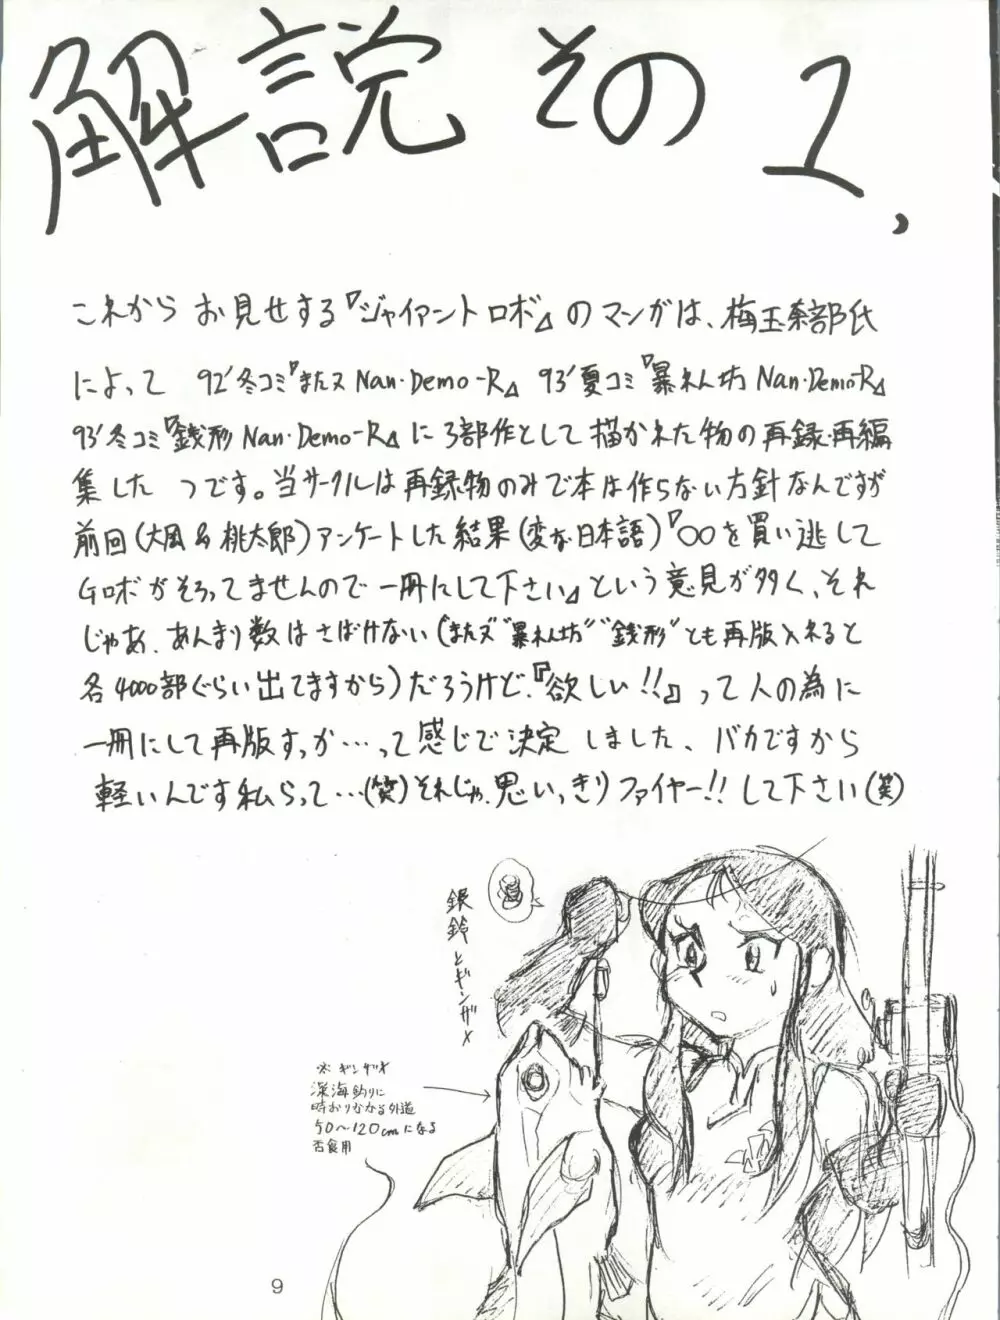 解説 その 1、
これから お見せする『ジャイアント ロボ』のマンガは、梅玉奈部氏
によって 92'冬コミ『またヌ Nan・Demo-R』 93'夏コミ『暴れん坊 Nan・Demo-R』
93'冬コミ『銭形 Nan・Demo-R』に3部作として描かれた物の再録・再編
集した つです。当サークルは再録物のみで本は作らない方針なんですが
前回(大風&桃太郎)アンケートした結果(変な日本語)『○○を買い逃して
Gロボがそろってませんので一冊にして下さい』という意見が多く、それ
じゃあ、あんまり数はさばけない("またヌ""暴れん坊""銭形"とも再版入れると
各4000部ぐらい出てますから)だろうけど、『欲しい!!』って人の為に
一冊にして再版すっか…って感じで決定しました、バカですから
軽いんです私らって…(笑)それじゃ、思いっきりファイヤー!!して下さい(笑)
銀鈴とギンザメ
※ギンザメ
深海釣りに
時おりかかる外道
50〜120cmになる
否食用
9